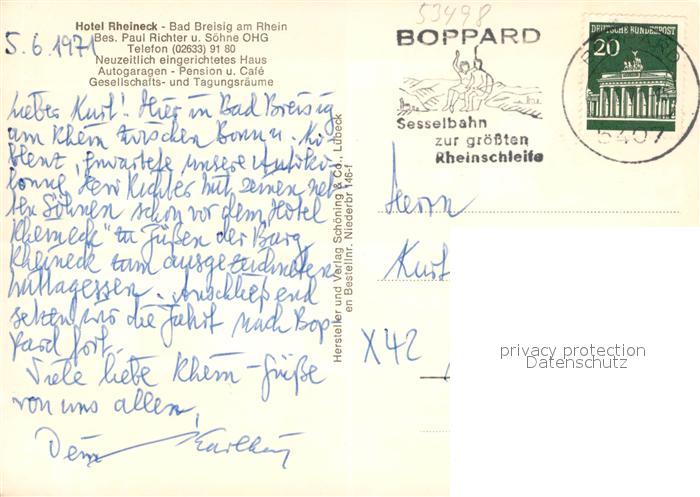 Hotel Rheineck - Bad Breisig am Rhein
Bes. Paul Richter u. Söhne OHG
Telefon (02633) 91 80
Neuzeitlich eingerichtetes Haus
Autogaragen - Pension u. Café
Gesellschafts- und Tagungsräume
5.6.1971
Lieber Kurt! Hier in Bad Breisig
am Rhein zwischen Bonn u. Ko
blenz, erwartete unsere
Herr Richter mit seinen net
ten Söhnen schon vor dem „Hotel
Rheineck" zu Füßen der Burg
Rheineck zum ausgezeichneten
Mittagessen. Anschließend
setzen wir die Fahrt nach Bop
pard fort.
Viele liebe Rhein-Grüße
von uns allen,
Dein
Hersteller und Verlag Schöning & Co., Lübeck
en Bestellnr. Niederbr 146-f
53498
BOPPARD
Sesselbahn
zur größten
Rheinschleife
DEUTSCHE BUNDESPOST
20
5407
Herrn
Kurt
X42
privacy protection
Datenschutz